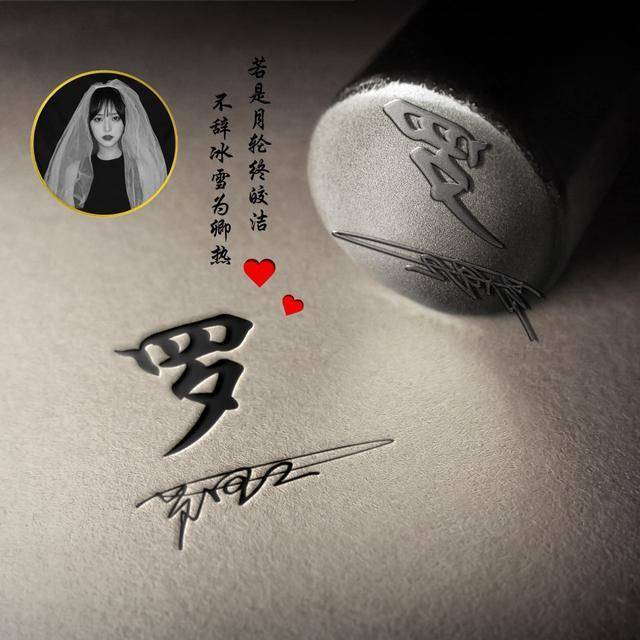 若是月轮终皎洁
不辞冰雪为卿热
罗